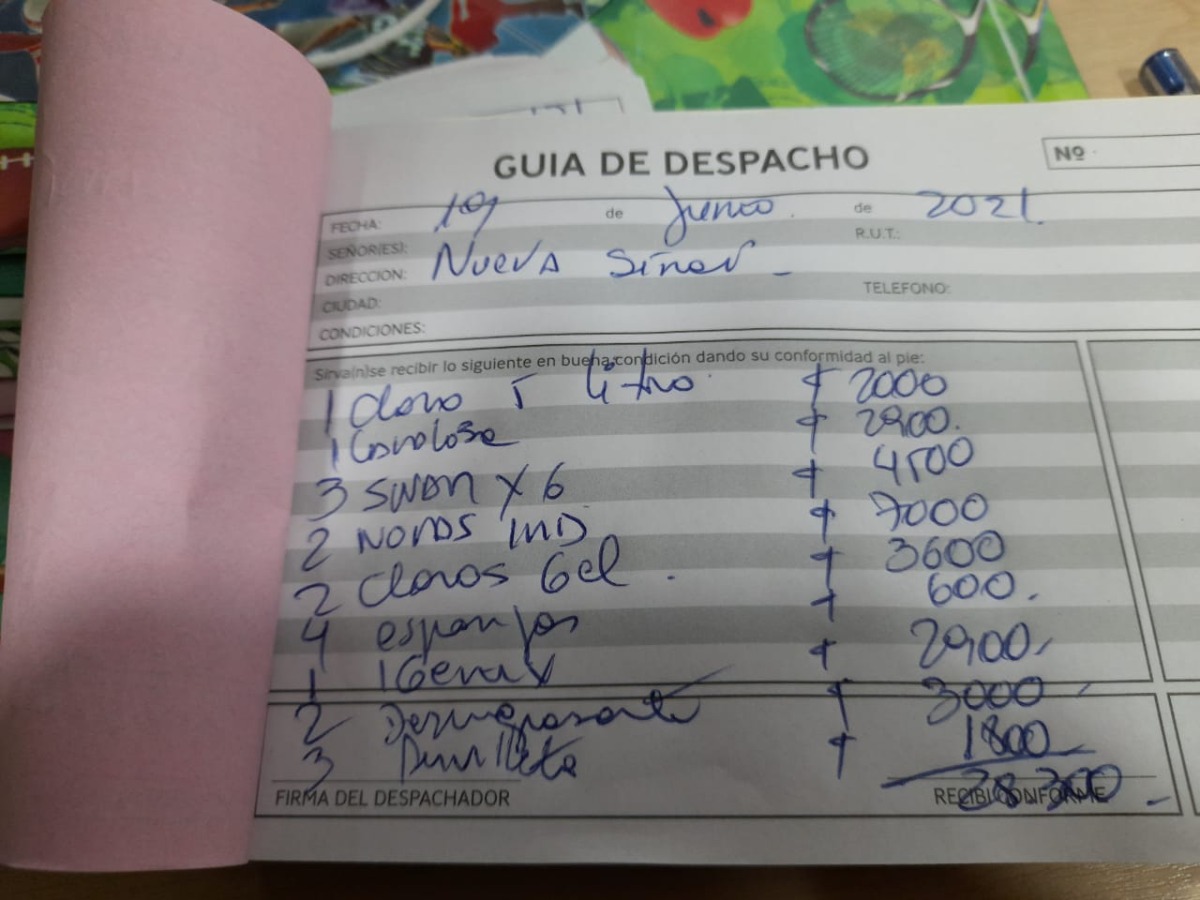 GUIA DE DESPACHO
Nº
FECHA: 19 de Junio de 2021
SEÑOR(ES): R.U.T.:
DIRECCION: Nueva Sinai
CIUDAD: TELEFONO:
CONDICIONES:
Sirva(n)se recibir lo siguiente en buena condición dando su conformidad al pie:
1 Cloro 5 litro $ 2000
1 2900
3 SWAN X 6 $ 4500
2 NOVAS IND $ 7000
2 Cloros Gel $ 3600
4 esponjas $ 600
1 IGENIX $ 2900
2 Desengrasante $ 3000
3 $ 1800
FIRMA DEL DESPACHADOR RECIBI CONFORME
28300